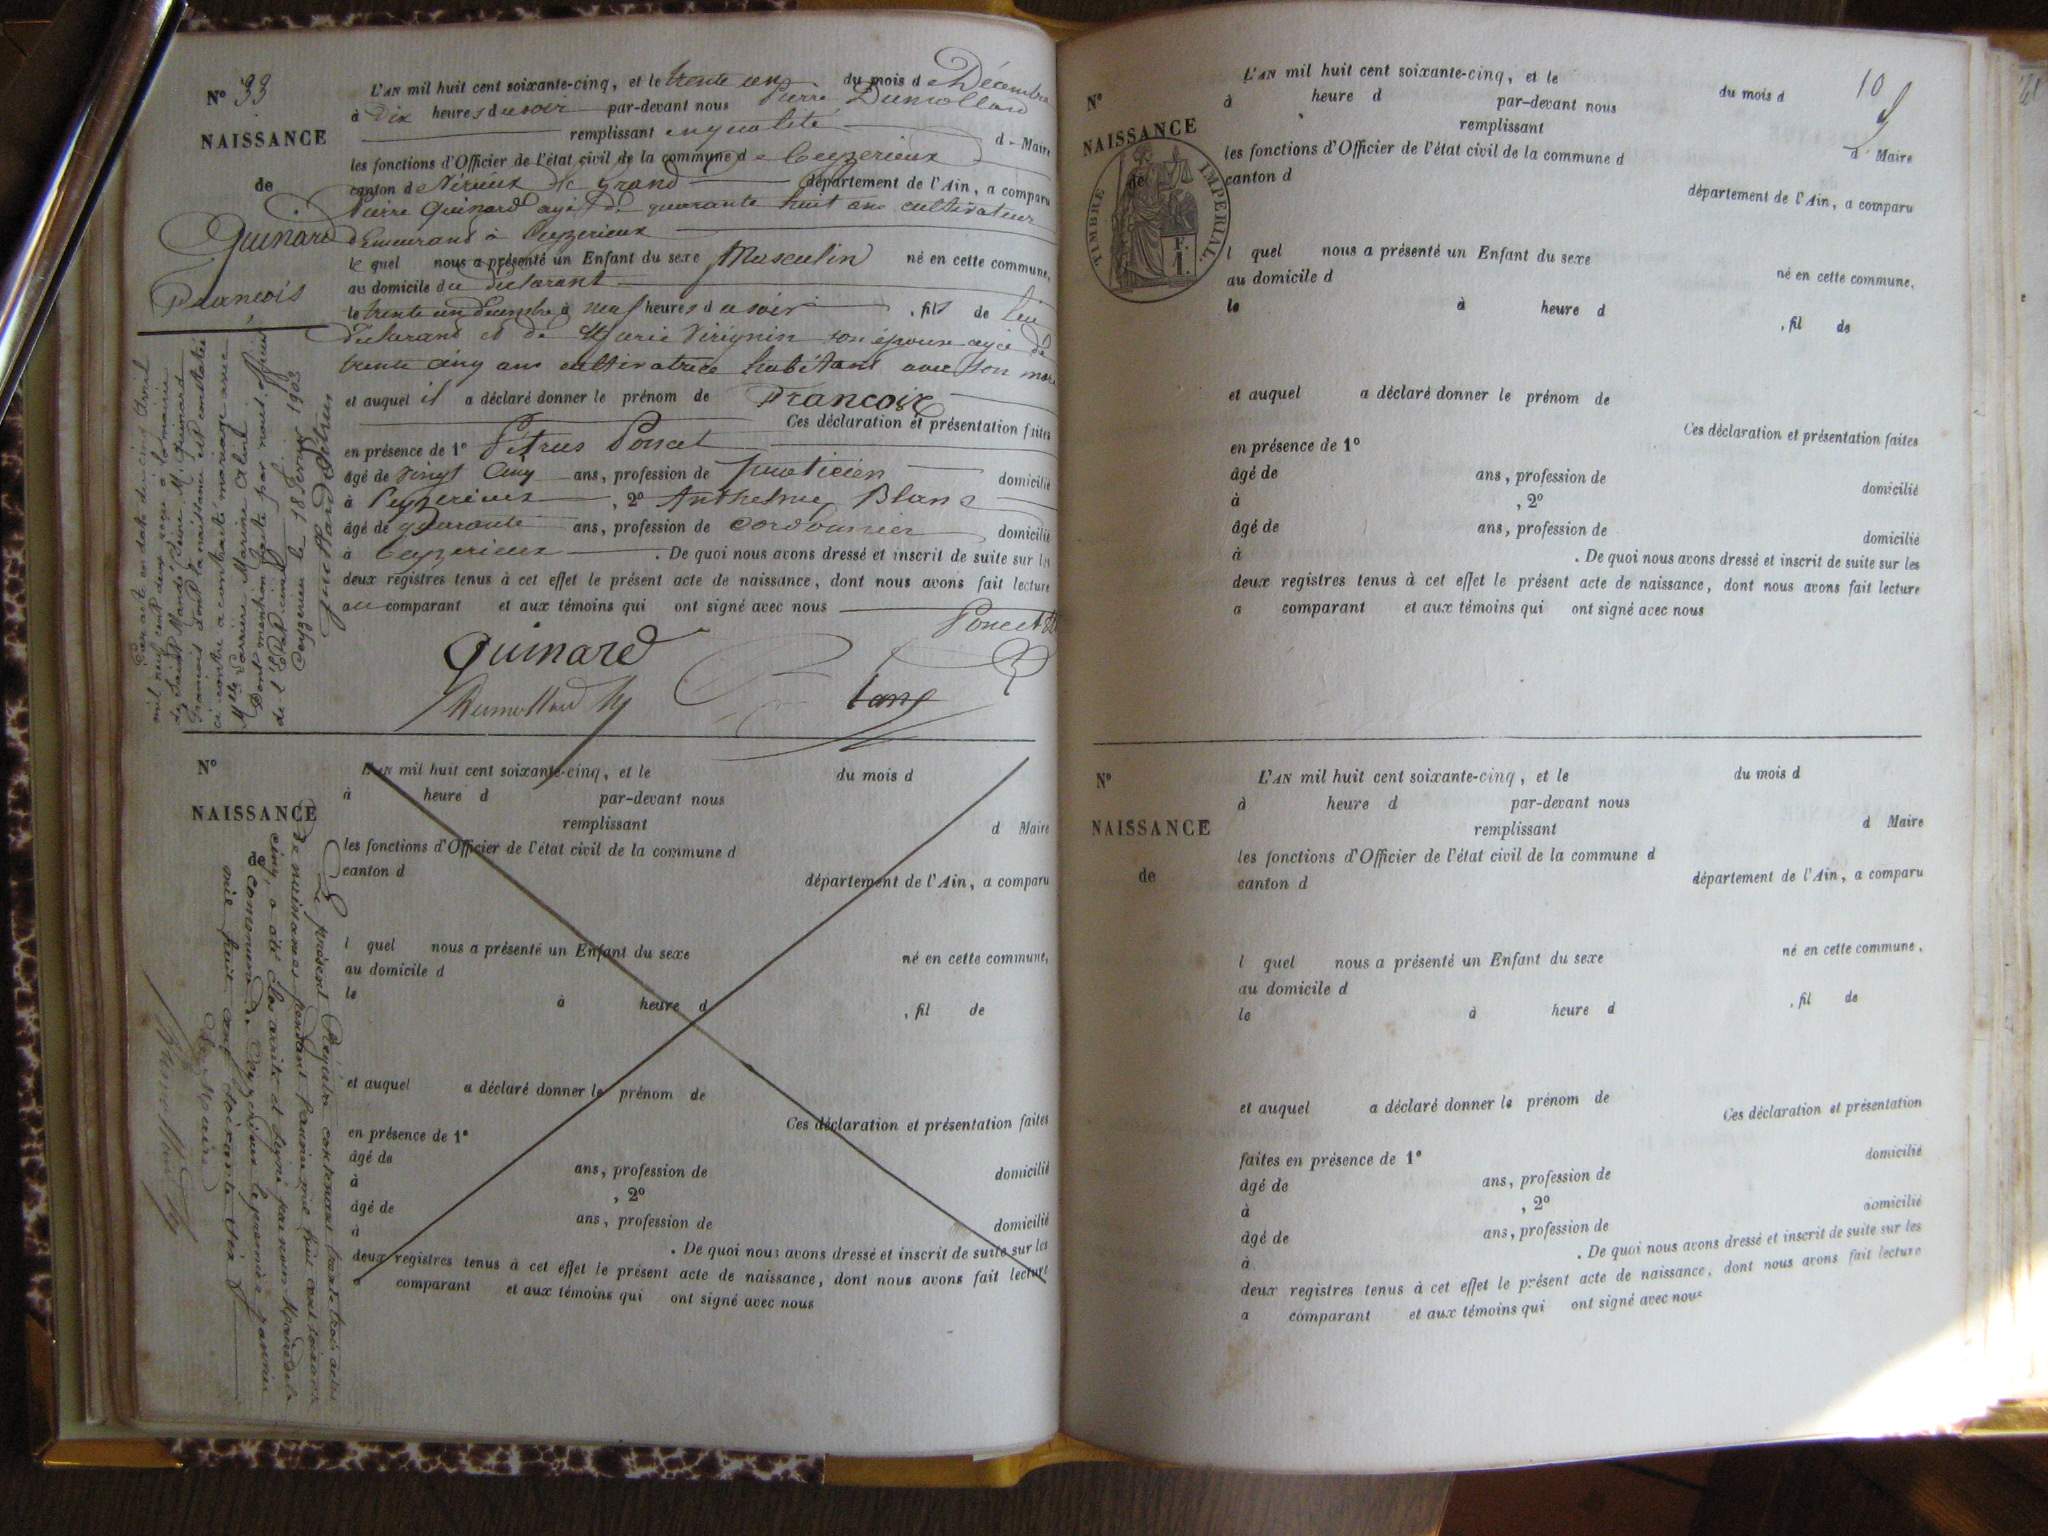 N° 33
NAISSANCE
de
Guinard
Francois
L'AN mil huit cent soixante-cinq, et le trente un du mois de Décembre
à Dix heures du soir par-devant nous Pierre Dumollard
remplissant en qualité d- Maire
les fonctions d'Officier de l'état civil de la commune de Ceyzerieux
canton de département de l'Ain, a comparu
Pierre Guinard agé de quarante huit ans cultivateur
demeurant à Ceyzerieux
le quel nous a présenté un Enfant du sexe Masculin né en cette commune,
au domicile du declarant
le trente un Decembre à neuf heures du soir, fils de lui
declarant et de Marie son épouse agée de
trente cinq ans cultivatrice habitant avec son mari
et auquel il a déclaré donner le prénom de Francois
Ces déclaration et présentation faites
en présence de 1° Pétrus Poncet
âgé de vingt cinq ans, profession de praticien domicilié
à Ceyzerieux, 2° Anthelme Blanc
âgé de quarante ans, profession de cordonnier domicilié
à Ceyzerieux. De quoi nous avons dressé et inscrit de suite sur les
deux registres tenus à cet effet le présent acte de naissance, dont nous avons fait lecture
au comparant et aux témoins qui ont signé avec nous
Poncet
Guinard
Dumollard
Par acte en date du cinq Avril
mil neuf cent deux reçu à la mairie
de Saint Mandé, Seine, M. Guinard
François dont la naissance est constatée
ci contre a contracté mariage avec
Mlle Marine Aline
Dont mention faite par nous officier
de l'Etat civil
Ceyzerieu le 18 Fevrier 1903
N°
NAISSANCE
de
L'AN mil huit cent soixante-cinq, et le du mois d
à heure d par-devant nous
remplissant d Maire
les fonctions d'Officier de l'état civil de la commune d
canton d département de l'Ain, a comparu
l quel nous a présenté un Enfant du sexe né en cette commune,
au domicile d
le à heure d, fil de
et auquel a déclaré donner le prénom de
Ces déclaration et présentation faites
en présence de 1°
âgé de ans, profession de domicilié
à, 2°
âgé de ans, profession de domicilié
à. De quoi nous avons dressé et inscrit de suite sur les
deux registres tenus à cet effet le présent acte de naissance, dont nous avons fait lecture
a comparant et aux témoins qui ont signé avec nous
Le présent Régistre contenant trente trois actes
de naissances pendant l'année mil huit cent soixante
cinq, a été clos arrêté et signé par nous Maire de la
commune de Ceyzerieux le premier Janvier
mil huit cent soixante six
Le Maire
10
N°
NAISSANCE
de
TIMBRE IMPERIAL
L'AN mil huit cent soixante-cinq, et le du mois d
à heure d par-devant nous
remplissant d Maire
les fonctions d'Officier de l'état civil de la commune d
canton d département de l'Ain, a comparu
l quel nous a présenté un Enfant du sexe né en cette commune,
au domicile d
le à heure d, fil de
et auquel a déclaré donner le prénom de
Ces déclaration et présentation faites
en présence de 1°
âgé de ans, profession de domicilié
à, 2°
âgé de ans, profession de domicilié
à. De quoi nous avons dressé et inscrit de suite sur les
deux registres tenus à cet effet le présent acte de naissance, dont nous avons fait lecture
a comparant et aux témoins qui ont signé avec nous
N°
NAISSANCE
de
L'AN mil huit cent soixante-cinq, et le du mois d
à heure d par-devant nous
remplissant d Maire
les fonctions d'Officier de l'état civil de la commune d
canton d département de l'Ain, a comparu
l quel nous a présenté un Enfant du sexe né en cette commune.
au domicile d
le à heure d, fil de
et auquel a déclaré donner le prénom de
Ces déclaration et présentation
faites en présence de 1°
âgé de ans, profession de domicilié
à, 2°
âgé de ans, profession de domicilié
à. De quoi nous avons dressé et inscrit de suite sur les
deux registres tenus à cet effet le présent acte de naissance, dont nous avons fait lecture
a comparant et aux témoins qui ont signé avec nous